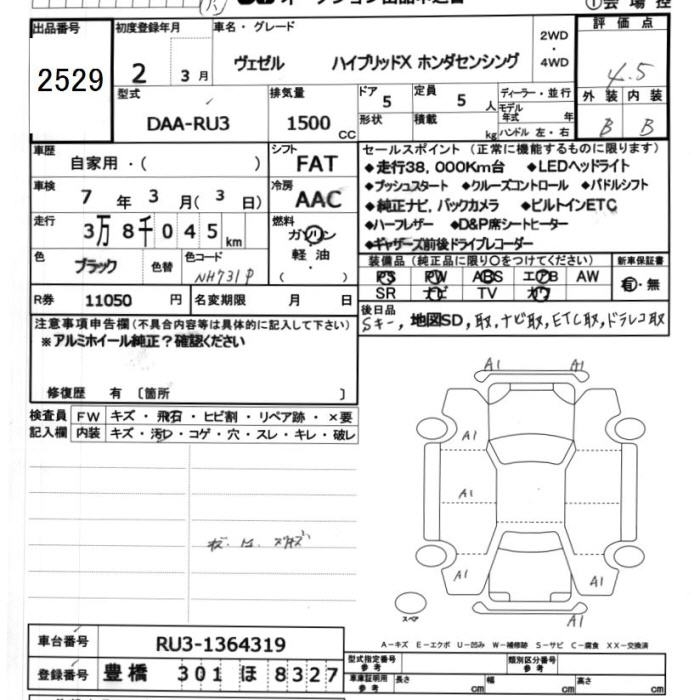 ①会場控
出品番号
2529
初度登録年月
2 3月
車名・グレード
ヴェゼル ハイブリッドX ホンダセンシング
2WD
・
4WD
評価点
4.5
外装 内装
B B
型式
DAA-RU3
排気量
1500 CC
ドア
5
定員
5 人
形状
積載
kg
ディーラー・並行
モデル年式 年
ハンドル 左・右
車歴
自家用・( )
シフト
FAT
車検
7 年 3 月 ( 3 日)
冷房
AAC
走行
3万8千045 km
燃料
ガソリン
軽油
( )
色
ブラック
色替
色コード
NH731P
R券 11050 円
名変期限 月 日
セールスポイント(正常に機能するものに限ります)
◆走行38,000Km台 ◆LEDヘッドライト
◆プッシュスタート ◆クルーズコントロール ◆パドルシフト
◆純正ナビ,バックカメラ ◆ビルトインETC
◆ハーフレザー ◆D&P席シートヒーター
◆ギャザーズ前後ドライブレコーダー
装備品(純正品に限り○をつけてください)
PS PW ABS エアB AW
SR ナビ TV カワ
新車保証書
有・無
後日品
Sキー, 地図SD, 取, ナビ取, ETC取, ドラレコ取
注意事項申告欄(不具合内容等は具体的に記入して下さい)
※アルミホイール純正?確認ください
修復歴 有 〔箇所 〕
検査員記入欄
FW キズ・飛石・ヒビ割・リペア跡・×要
内装 キズ・汚レ・コゲ・穴・スレ・キレ・破レ
A1 A1
A1
A1
A1 A1
A1
スペア
A-キズ E-エクボ U-凹み W-補修跡 S-サビ C-腐食 XX-交換済
車台番号 RU3-1364319
登録番号 豊橋 301 ほ 8327
型式指定番号参考
類別区分番号参考
車庫証明用参考 長さ cm 幅 cm 高さ cm